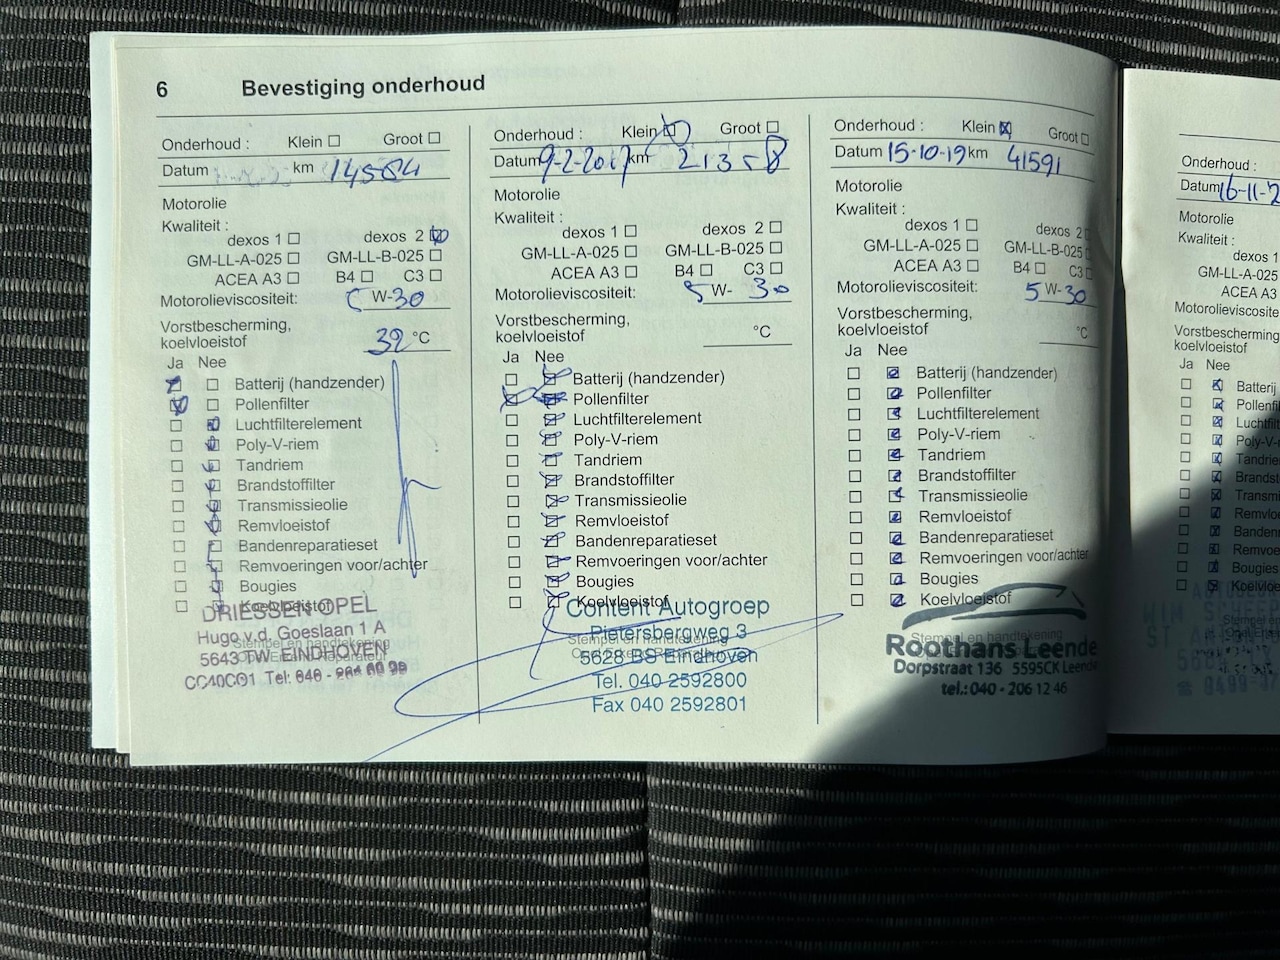 6 Bevestiging onderhoud
Onderhoud : Klein Groot
Datum km 14584
Motorolie
Kwaliteit :
dexos 1 dexos 2
GM-LL-A-025 GM-LL-B-025
ACEA A3 B4 C3
Motorolieviscositeit: 5 W-30
Vorstbescherming,
koelvloeistof 32 °C
Ja Nee
Batterij (handzender)
Pollenfilter
Luchtfilterelement
Poly-V-riem
Tandriem
Brandstoffilter
Transmissieolie
Remvloeistof
Bandenreparatieset
Remvoeringen voor/achter
Bougies
Koelvloeistof
DRIESSEN OPEL
Hugo v.d. Goeslaan 1 A
Stempel en handtekening
5643 TW EINDHOVEN
Tel: 040 -
Onderhoud : Klein Groot
Datum 9-2-2017 km 21358
Motorolie
Kwaliteit :
dexos 1 dexos 2
GM-LL-A-025 GM-LL-B-025
ACEA A3 B4 C3
Motorolieviscositeit: 5 W- 30
Vorstbescherming,
koelvloeistof °C
Ja Nee
Batterij (handzender)
Pollenfilter
Luchtfilterelement
Poly-V-riem
Tandriem
Brandstoffilter
Transmissieolie
Remvloeistof
Bandenreparatieset
Remvoeringen voor/achter
Bougies
Koelvloeistof
Content Autogroep
Pietersbergweg 3
Stempel en handtekening
5628 BS Eindhoven
Tel. 040 2592800
Fax 040 2592801
Onderhoud : Klein Groot
Datum 15-10-19 km 41591
Motorolie
Kwaliteit :
dexos 1 dexos 2
GM-LL-A-025 GM-LL-B-025
ACEA A3 B4 C3
Motorolieviscositeit: 5 W-30
Vorstbescherming,
koelvloeistof °C
Ja Nee
Batterij (handzender)
Pollenfilter
Luchtfilterelement
Poly-V-riem
Tandriem
Brandstoffilter
Transmissieolie
Remvloeistof
Bandenreparatieset
Remvoeringen voor/achter
Bougies
Koelvloeistof
Stempel en handtekening
Roothans Leende
Dorpstraat 136 5595CK Leende
tel.: 040 - 206 12 46
Onderhoud :
Datum 16-11-2
Motorolie
Kwaliteit :
dexos 1
GM-LL-A-025
ACEA A3
Motorolieviscositeit
Vorstbescherming
koelvloeistof
Ja Nee
Batterij
Pollenfi
Luchtfilt
Poly-V-
Tandrie
Brandst
Transmi
Remvloe
Banden
Remvoe
Bougies
Koelvloe
WIM SCHEEP